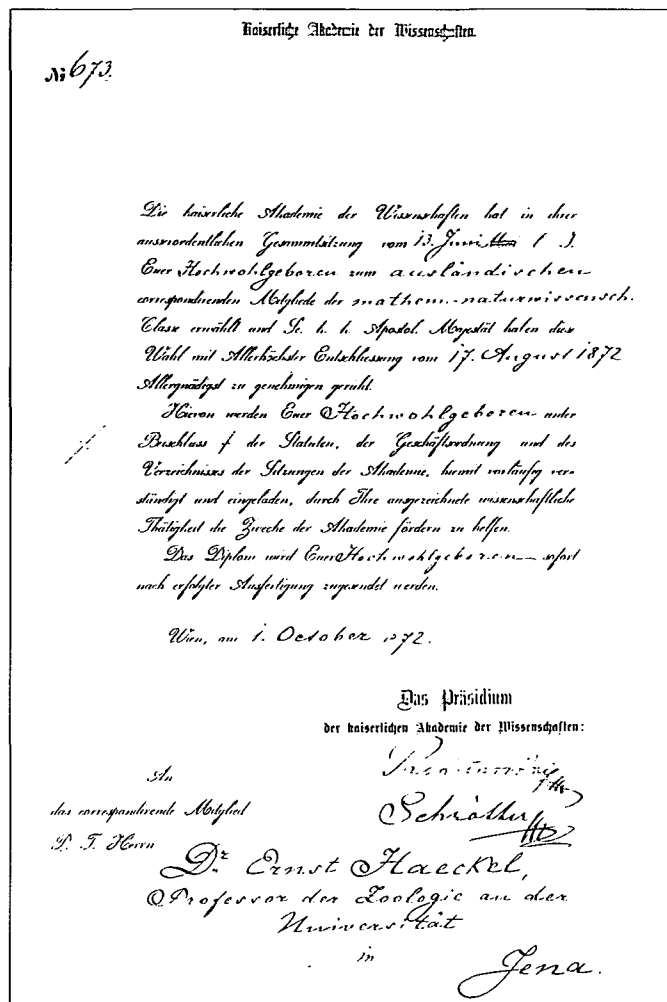 Kaiserliche Akademie der Wissenschaften.
№ 673.
Die kaiserliche Akademie der Wissenschaften hat in ihrer
ausserordentlichen Gesammtsitzung vom 13. Juni l. J.
Euer Hochwohlgeboren zum ausländischen
correspondirenden Mitgliede der mathem.-naturwissensch.
Classe erwählt und Se. k. k. Apostol. Majestät haben diese
Wahl mit Allerhöchster Entschliessung vom 17. August 1872
Allergnädigst zu genehmigen geruht.
Hievon werden Euer Hochwohlgeboren unter
Beischluss der Statuten, der Geschäftsordnung und des
Verzeichnisses der Sitzungen der Akademie, hiemit vorläufig ver-
ständigt und eingeladen, durch Ihre ausgezeichnete wissenschaftliche
Thätigkeit die Zwecke der Akademie fördern zu helfen.
Das Diplom wird Euer Hochwohlgeboren sofort
nach erfolgter Ausfertigung zugesendet werden.
Wien, am 1. October 1872.
Das Präsidium
der kaiserlichen Akademie der Wissenschaften:
Schrötter
An
das correspondirende Mitglied
P. T. Herrn
Dr. Ernst Haeckel,
Professor der Zoologie an der
Universität
in
Jena.